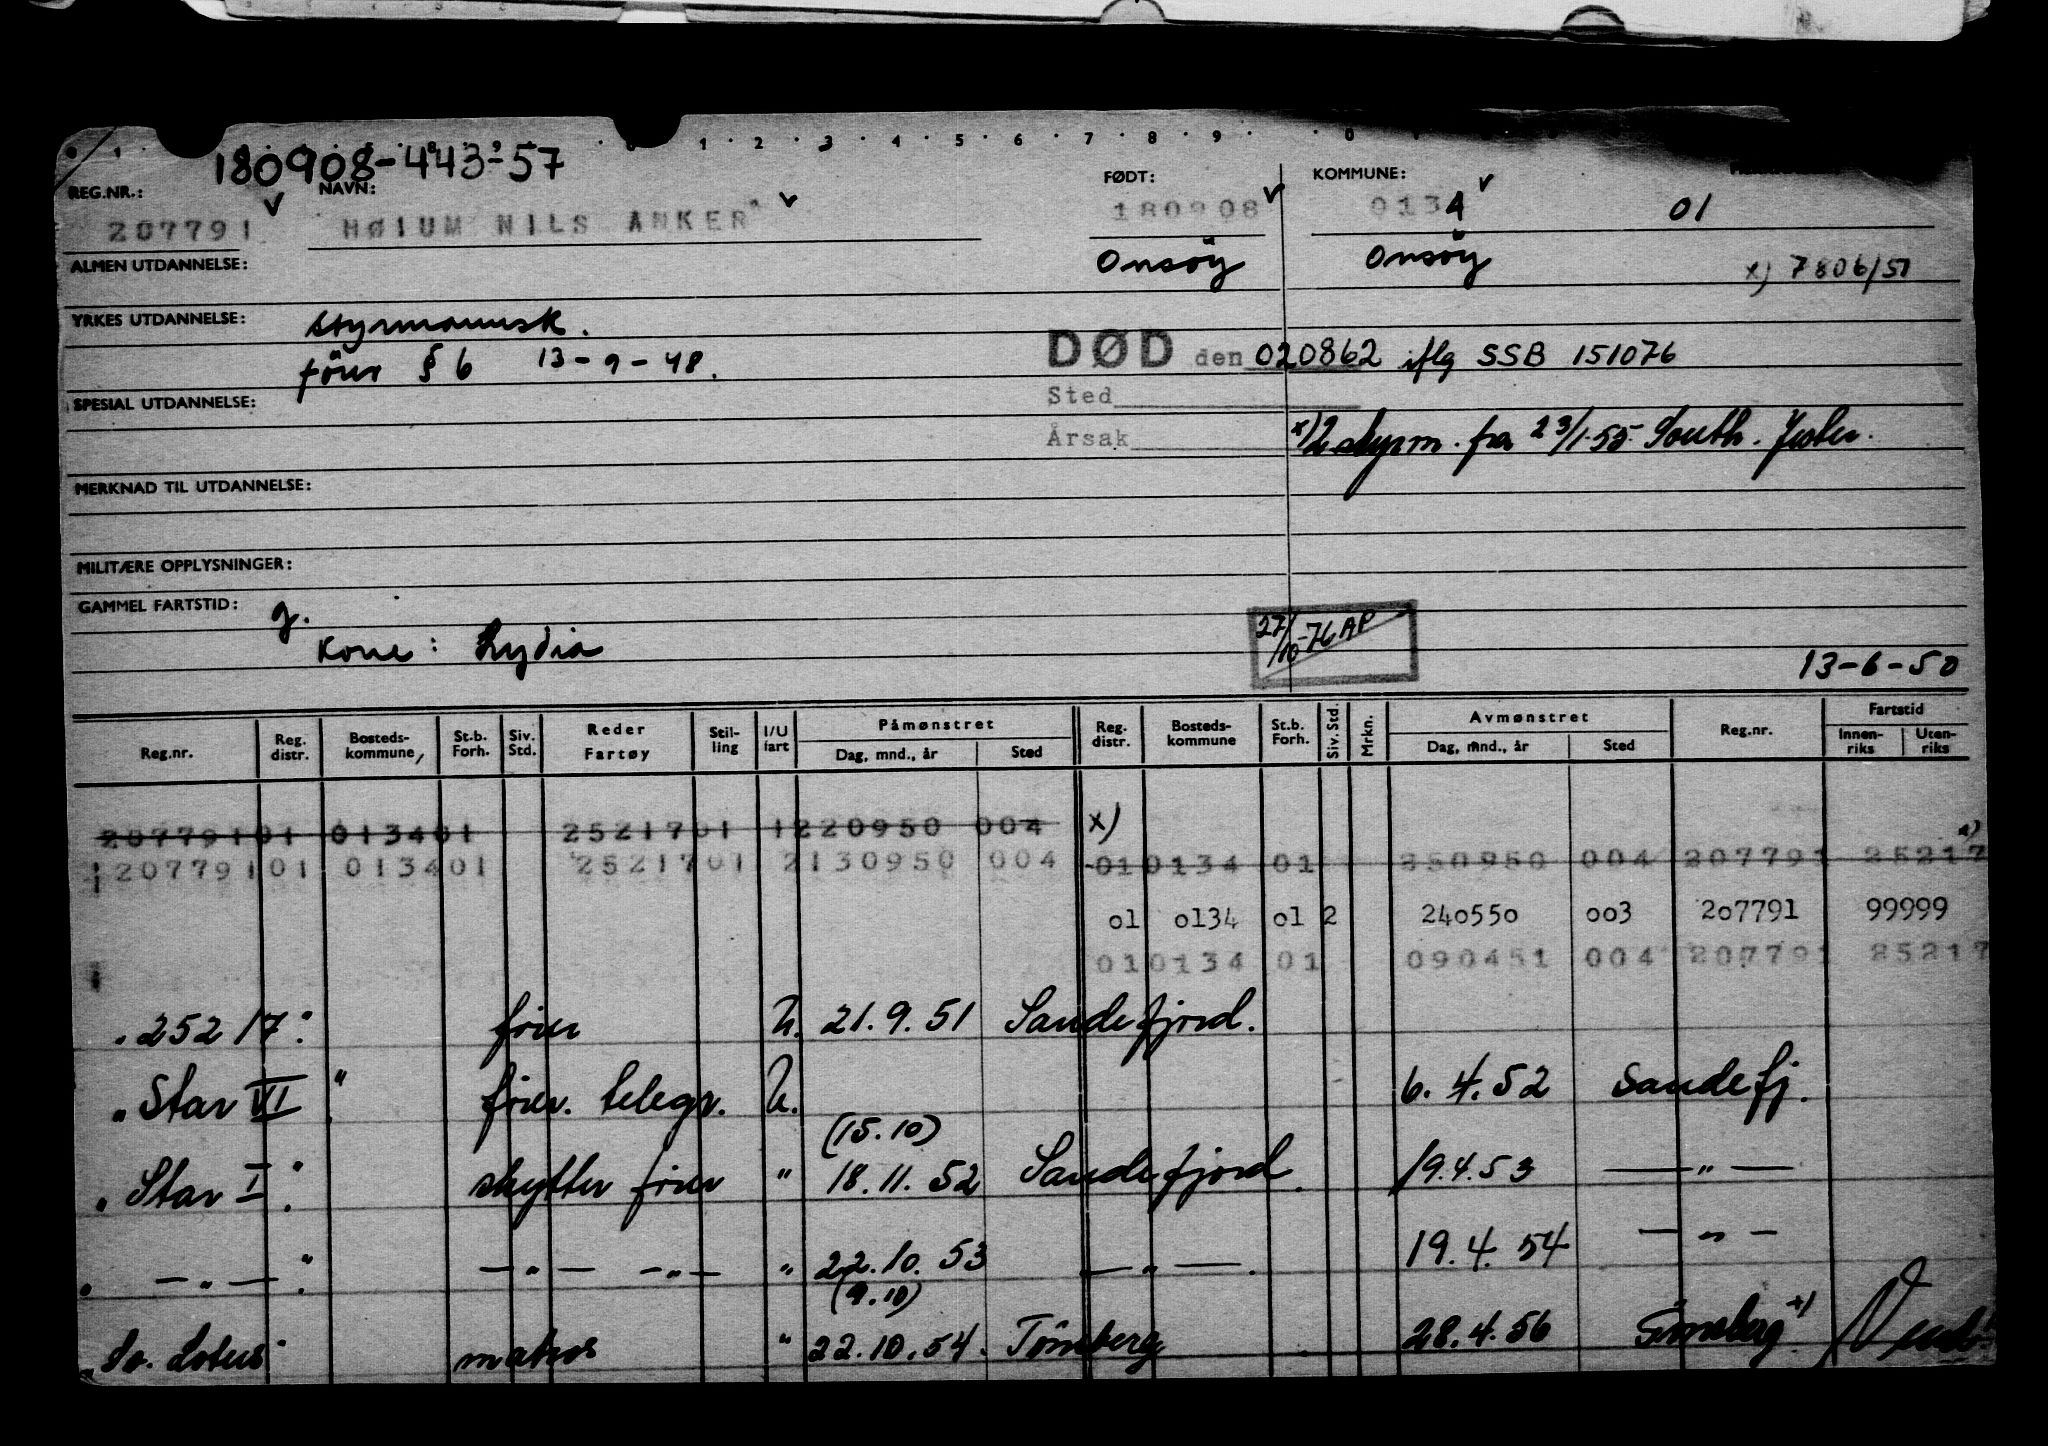 180908-443-57
REG.NR.: NAVN: FØDT: KOMMUNE:
207791 HØIUM NILS ANKER 180908 0134 01
ALMEN UTDANNELSE: Onsøy Onsøy x) 7806/51
YRKES UTDANNELSE: styrmannsk.
fører § 6 13-9-48. DØD den 020862 iflg SSB 151076
SPESIAL UTDANNELSE: Sted
Årsak x) 2 styrm. fra 23/1-55 South.
MERKNAD TIL UTDANNELSE:
MILITÆRE OPPLYSNINGER:
GAMMEL FARTSTID: g.
Kone: Lydia 27/10-76 AP
13-6-50
Reg.nr. Reg. distr. Bosteds-kommune St.b. Forh. Siv. Std. Reder Fartøy Stil-ling I/U fart Påmønstret Dag, mnd., år Sted Reg. distr. Bosteds-kommune St.b. Forh. Siv. Std. Mrkn. Avmønstret Dag, mnd., år Sted Reg.nr. Fartstid Innen-riks Uten-riks
207791 01 0134 01 25217 01 1 220950 004 x)
207791 01 0134 01 25217 01 2 130950 004 01 0134 01 250950 004 207791 25217 x)
01 0134 01 2 240550 003 207791 99999
01 0134 01 090451 004 207791 25217
"25217" fører U. 21.9.51 Sandefjord.
"Star VI" fører. telegr. U. 6.4.52 Sandefj.
(15.10)
"Star I" skytter fører " 18.11.52 Sandefjord. 19.4.53 — " —
" — " — " — " — — " — " 22.10.53 — " —. 19.4.54 — " —
(9.10)
"So. Lotus" matros " 22.10.54. Tönsberg 28.4.56 Tönsberg x)